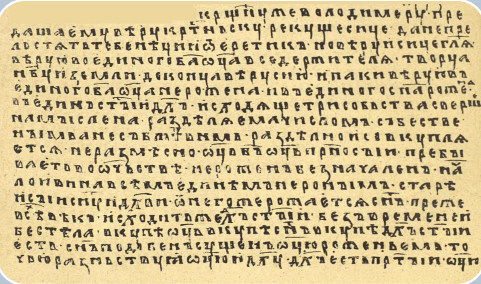 крщ҃ну же володимеру · пре
даша ему вѣру крт҃ньску · рекуще сице · да не пре
лостять тебе нѣции ѿ еретикъ · но вѣруи сице гл҃я ·
вѣрую во единого ба҃ ѡц҃а вседержителя · творца
нб҃у и земли · до конца вѣру сию · и паки вѣрую въ
единого ба҃ ѡц҃а не рожена · и въ единого сн҃а рожена
въ единъ ст҃ыи дх҃ъ · исходящь · три собьства сверш
на мыслена · раздѣляема числомъ · собьстве
нымь а не бж҃твомь · раздѣлно и совкупля
ется · неразмѣсно · ѡц҃ь бъ ѡц҃ь прн҃о сыи · пребы
ваеть во оч҃ьствѣ · нероженъ безначаленъ · на
ло и вина всѣмъ единѣмь нероньемь · старѣ
исыи сн҃у и дх҃ви · ѿ него же рожается сн҃ъ · преже
всѣ вѣкъ · исходить же дх҃ъ ст҃ыи · безъ времени и
бес тѣла · вкупѣ ѡц҃ь вкупѣ сн҃ъ вкупѣ дх҃ъ ст҃ыи
есть · сн҃ъ подобенъ сущенъ ѡц҃ю · роженьемь то
чью разньствуя ѡц҃ю и дх҃у · дх҃ъ есть прт҃ыи · ѡц҃ю и